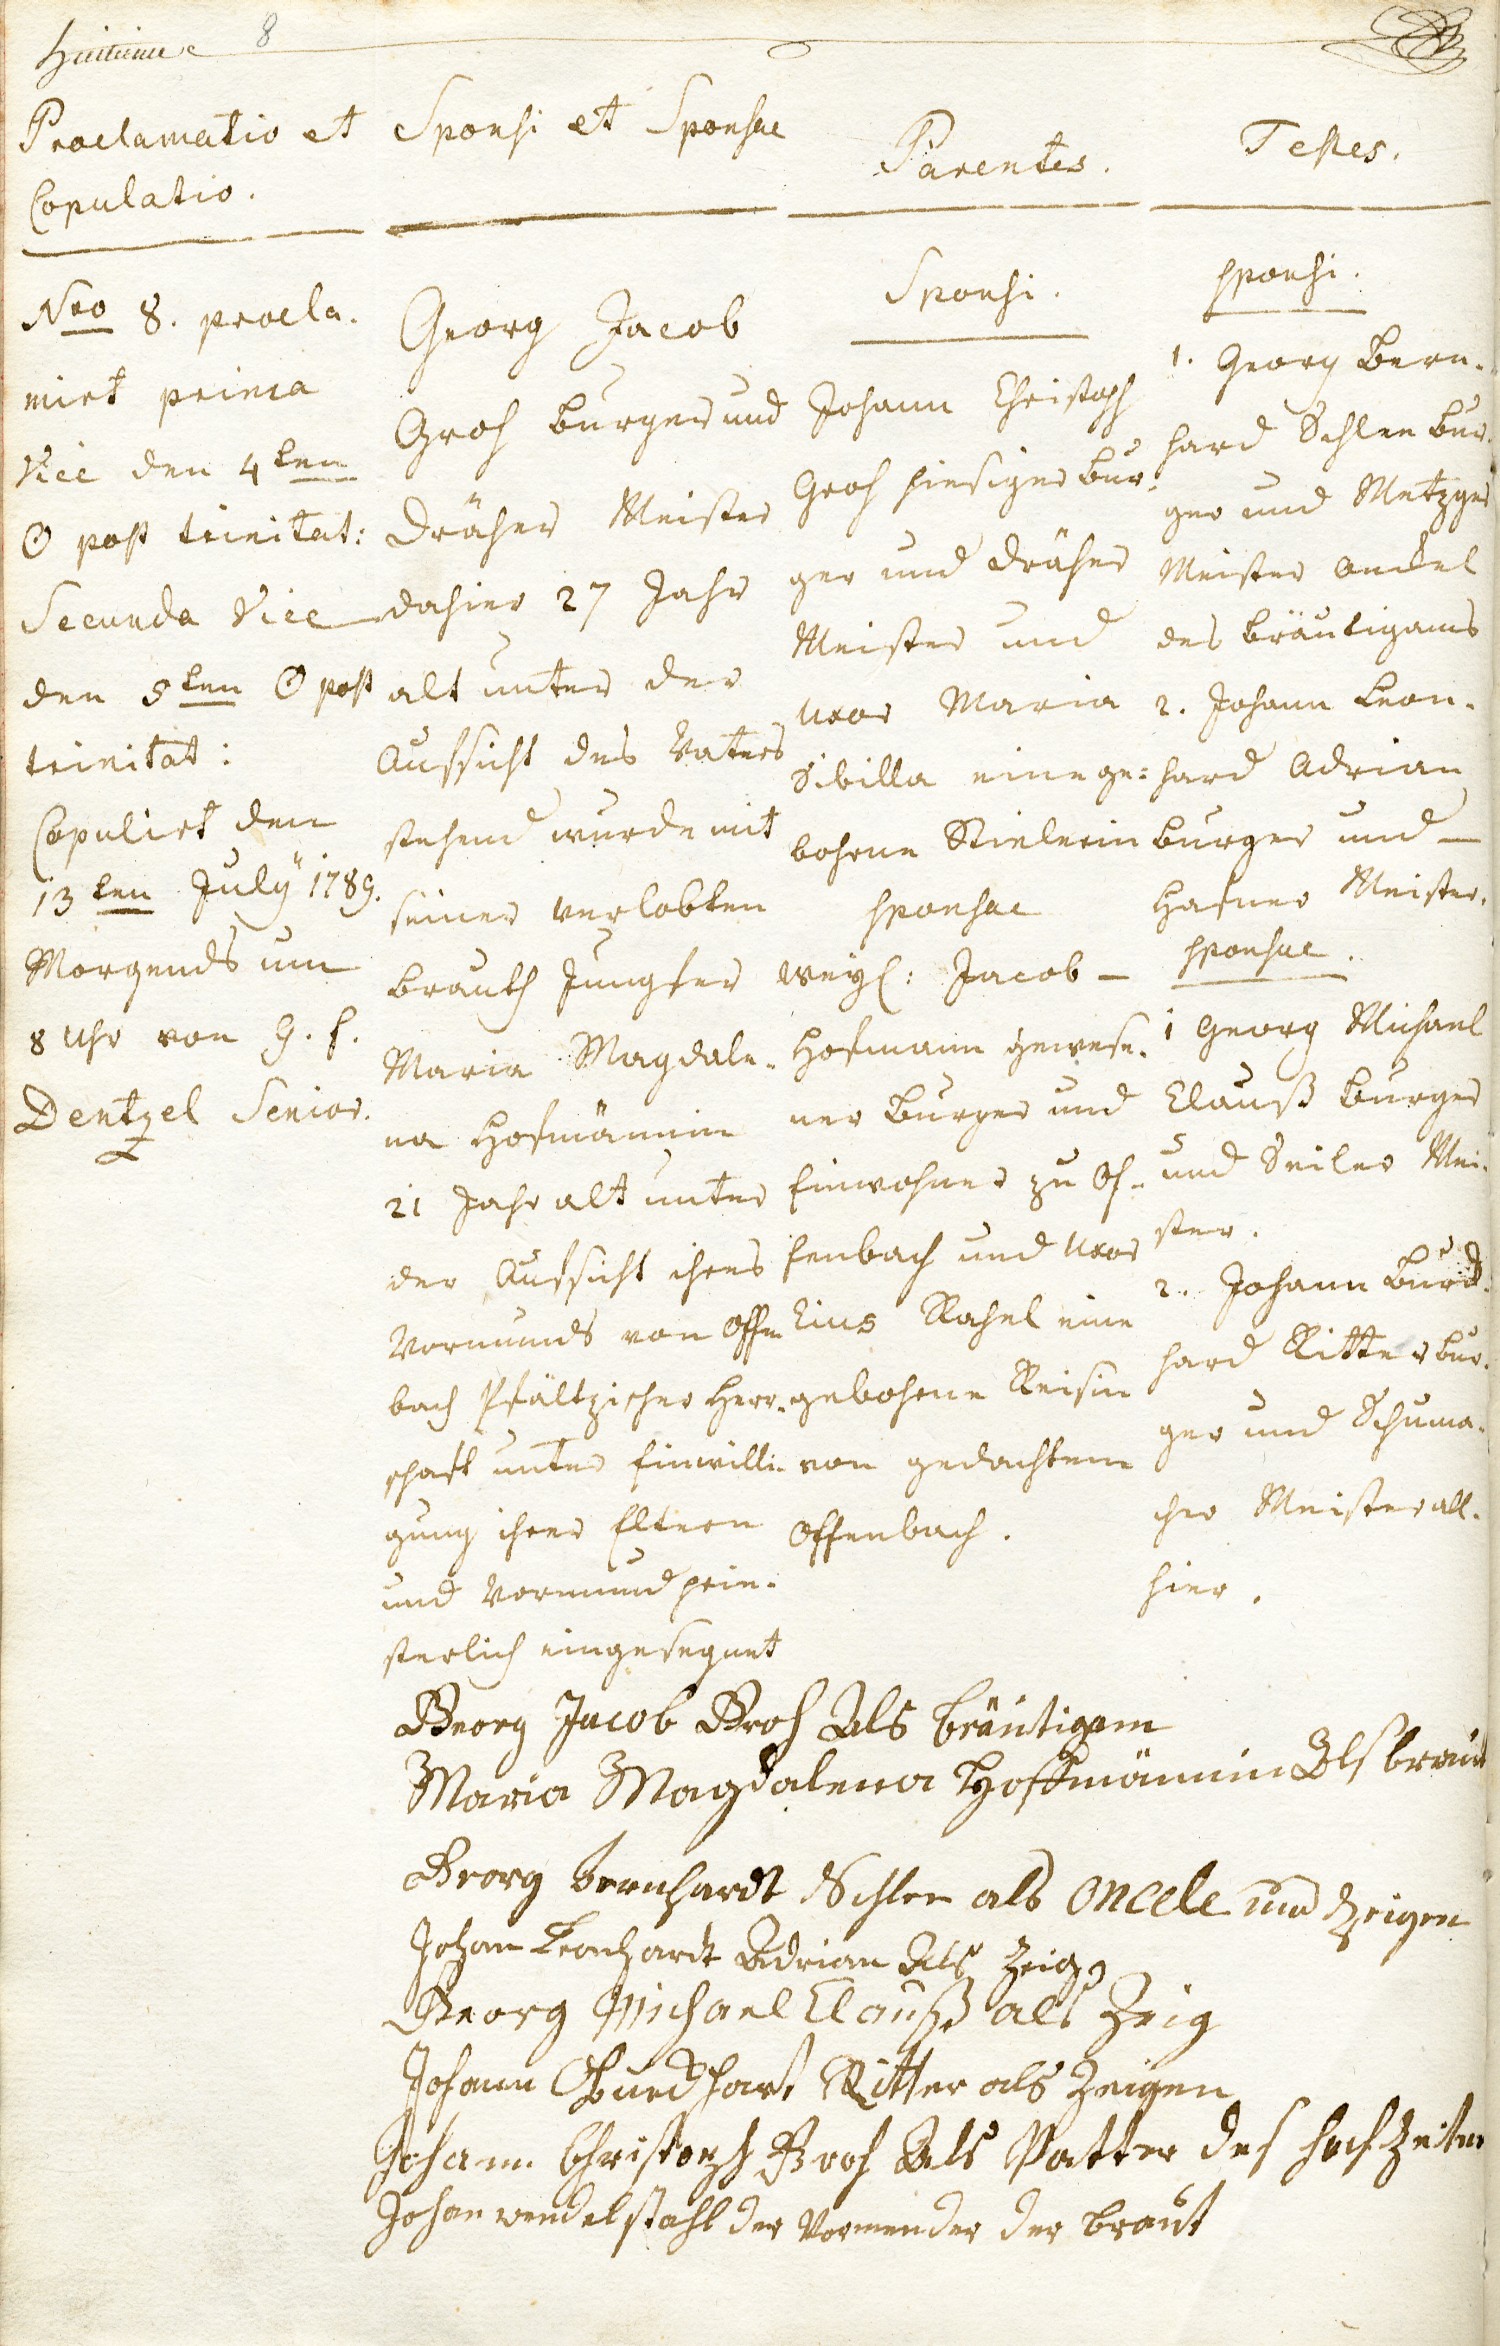 huitieme 8
Proclamatio et
Copulatio.
Nro 8. procla-
mirt prima
Vice den 4ten
☉ post trinitat:
Secunda Vice
den 5ten ☉ post
trinitat:
Copulirt den
13ten July 1789.
Morgends um
8 Uhr von G. f.
Dentzel Senior.
Sponsi et Sponsae
Georg Jacob
Groh burger und
Dräher Meister
dahier 27 Jahr
alt unter der
Aufsicht des Vaters
stehend wurde mit
seiner verlobten
brauth Jungfer
Maria Magdale-
na Hofmännin
21 Jahr alt unter
der Aufsicht ihres
Vormunds von Offen
bach Pfältzischer Herr-
schaft unter Einwilli-
gung ihrer Eltern
und Vormund prie-
sterlich eingesegnet
Parentes.
Sponsi.
Johann Christoph
Groh hiesiger bur-
ger und Dräher
Meister und
Uxor Maria
Sibilla eine ge-
bohrne Stielerin
sponsae
weyl: Jacob
Hofmann gewese-
ner Burger und
Einwohner zu Of-
fenbach und Uxor
Eius Rahel eine
gebohrne Reisin
von gedachtem
Offenbach.
Testes.
sponsi.
1. Georg Bern-
hard Schlee bur-
ger und Metzger
Meister onckel
des bräutigams
2. Johann Leon-
hard Adrian
burger und
Hafner Meister.
sponsae.
1 Georg Michael
Clauß burger
und Seiler Mei-
ster.
2. Johann Burck-
hard Ritter bur-
ger und Schuma-
cher Meister all-
hier.
Georg Jacob Groh Als bräutigam
Maria Magdalena Hoffmännin Als braut
Georg bernhardt Schlee als oncele und Zeigen
Johan Leonhardt Adrian Als Zeig
Georg Michael Clauß als Zeig
Johann Burckhart Ritter als Zeigen
Johann Christoph Groh Als Vatter des hochzeiter
Johan wendel stahl der Vormender der braut